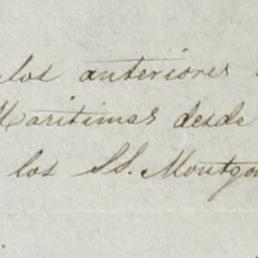 los anteriores
Maritimas desde
los SS. Montgo